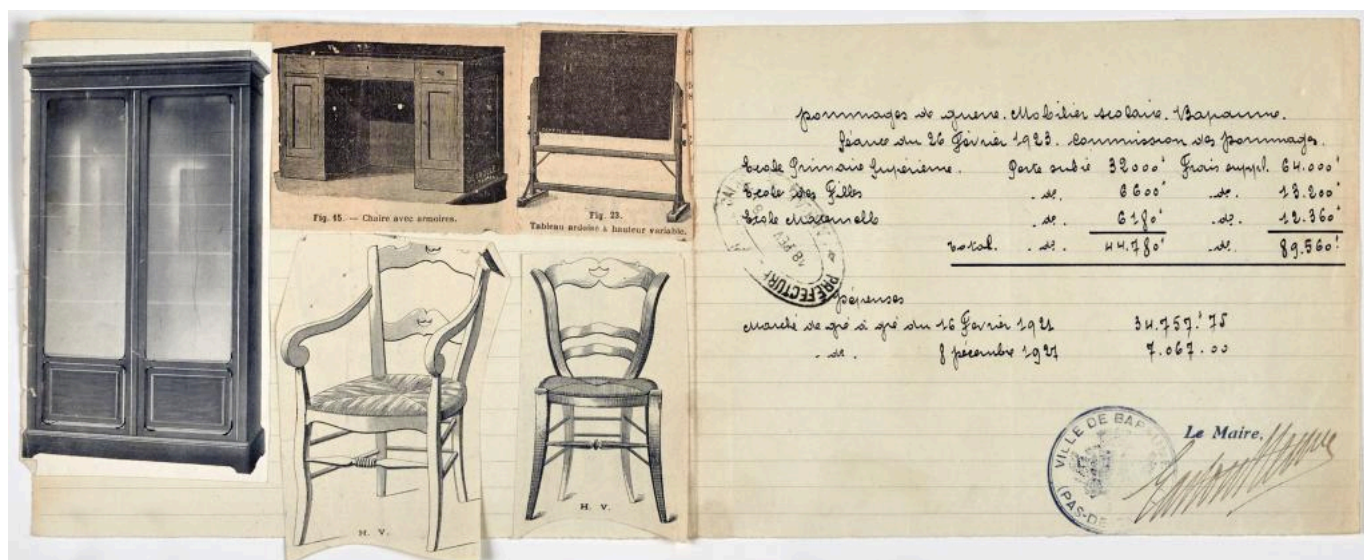 Fig. 15. — Chaire avec armoires.
Fig. 23.
Tableau ardoise à hauteur variable.
H. V.
H. V.
Dommages de guerre. Mobilier scolaire. Bapaume.
Séance du 26 Février 1923. Commission des Dommages.
Ecole Primaire Supérieure. Perte subie 32000f Frais suppl. 64.000f
Ecole des Filles . do. 6600f . do. 13.200f
Ecole Maternelle . do. 6180f . do. 12.360f
Total. . do. 44.780f . do. 89.560f
PREFECTURE
18 FEV
Dépenses
Marché de gré à gré du 16 Février 1921 34.757.f75
. do. 8 Décembre 1921 7.067.00
Le Maire,
VILLE DE BAP
(PAS-DE